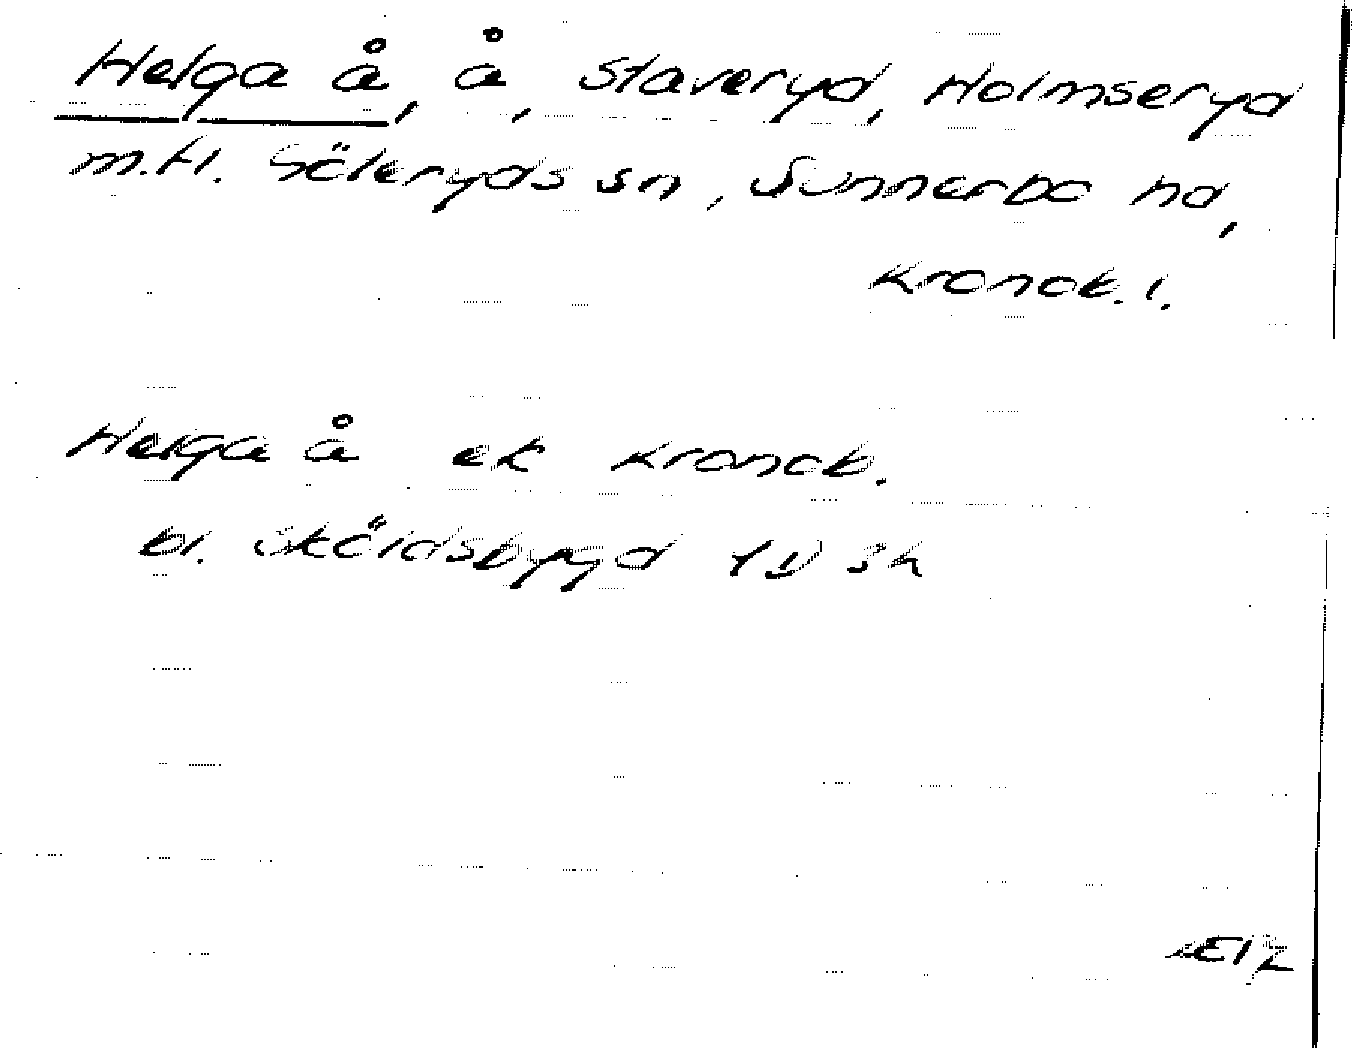 Helga å, å, Staveryd, Holmseryd
m.fl. Säleryds sn, Sunnerbo hd,
Kronob. l.
Helga å ek Kronob.
bl. Sköldsbygd 1D 3h